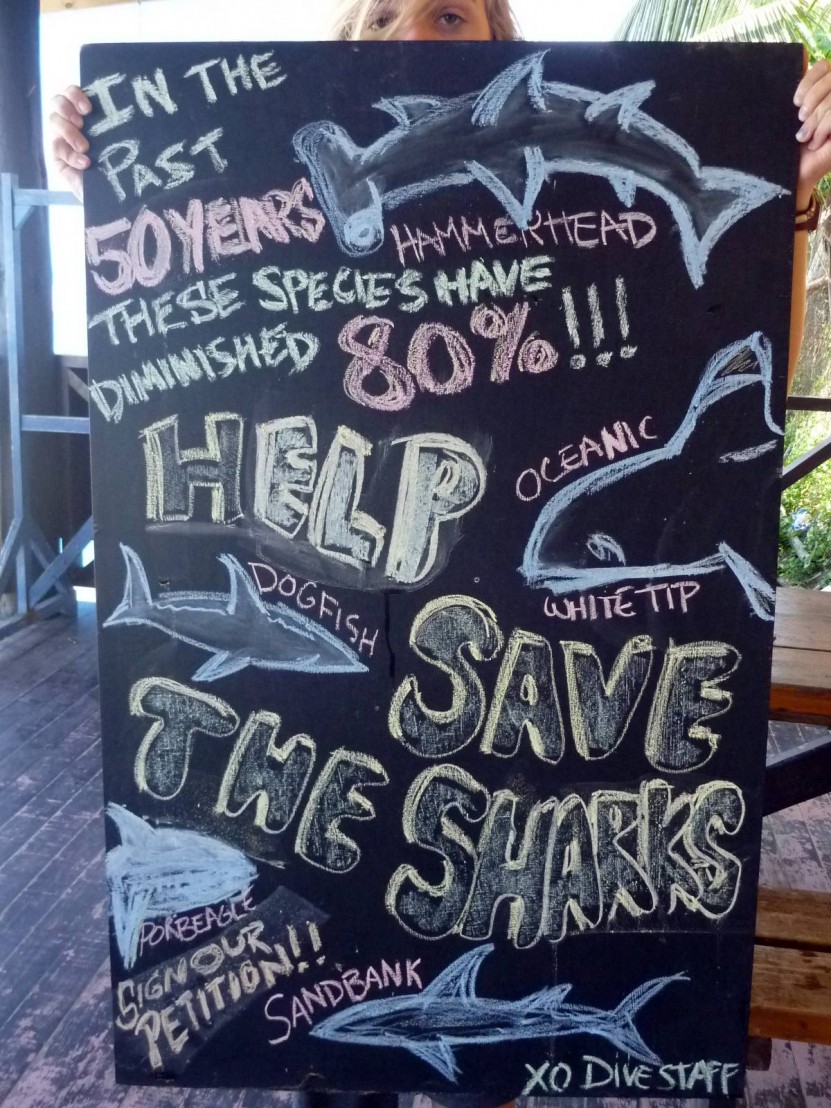 IN THE
PAST
50 YEARS
HAMMERHEAD
THESE SPECIES HAVE
DIMINISHED 80%!!!
HELP
OCEANIC
WHITE TIP
DOGFISH
SAVE
THE
SHARKS
PORBEAGLE
SIGN OUR
PETITION!!
SANDBANK
XO DIVE STAFF